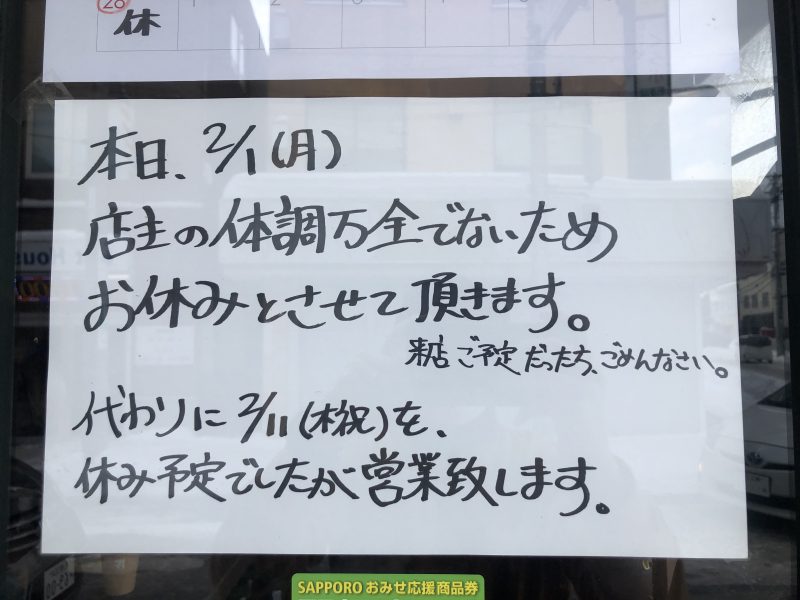 28
休
本日、2/1(月)
店主の体調万全でないため
お休みとさせて頂きます。
来店ご予定だったら、ごめんなさい。
代わりに2/11(木祝)を、
休み予定でしたが営業致します。
SAPPORO おみせ応援商品券